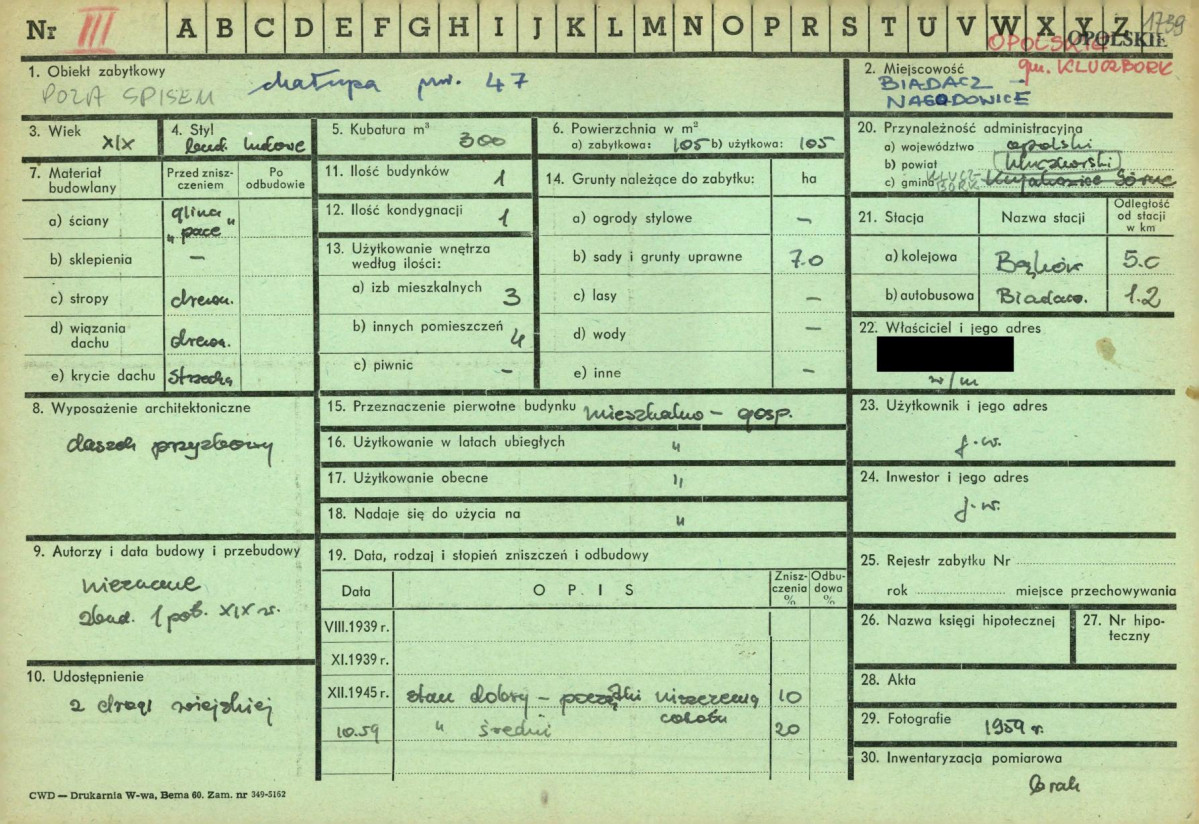 Nr III A B C D E F G H I J K L M N O P R S T U V W X Y Z 1739
OPOLSKIE OPOLSKIE
1. Obiekt zabytkowy chałupa nr. 47
POZA SPISEM
2. Miejscowość gm. KLUCZBORK
BIADACZ –
NAGODOWICE
3. Wiek XIX
4. Styl
bud. ludowe
5. Kubatura m³ 300
6. Powierzchnia w m²
a) zabytkowa: 105 b) użytkowa: 105
7. Materiał budowlany
Przed zniszczeniem
Po odbudowie
a) ściany glina "
" pace
b) sklepienia –
c) stropy drewn.
d) wiązania dachu drewn.
e) krycie dachu strzecha
8. Wyposażenie architektoniczne
daszek przyzbowy
9. Autorzy i data budowy i przebudowy
nieznane
zbud. 1 poł. XIX w.
10. Udostępnienie
z drogi wiejskiej
11. Ilość budynków 1
12. Ilość kondygnacji 1
13. Użytkowanie wnętrza
według ilości:
a) izb mieszkalnych 3
b) innych pomieszczeń 4
c) piwnic –
14. Grunty należące do zabytku: ha
a) ogrody stylowe –
b) sady i grunty uprawne 7.0
c) lasy –
d) wody –
e) inne –
15. Przeznaczenie pierwotne budynku mieszkalno – gosp.
16. Użytkowanie w latach ubiegłych "
17. Użytkowanie obecne "
18. Nadaje się do użycia na "
19. Data, rodzaj i stopień zniszczeń i odbudowy
Data
O P I S
Zniszczenia %
Odbudowa %
VIII.1939 r.
XI.1939 r.
XII.1945 r. stan dobry – początki niszczenia 10
całości
10.59 " średni 20
20. Przynależność administracyjna
a) województwo opolski
b) powiat kluczborski
c) gmina KLUCZBORK Kujakowice Górne
21. Stacja
Nazwa stacji
Odległość od stacji w km
a) kolejowa Bąków 5.0
b) autobusowa Biadacz. 1.2
22. Właściciel i jego adres
w/m
23. Użytkownik i jego adres
j.w.
24. Inwestor i jego adres
j.w.
25. Rejestr zabytku Nr
rok miejsce przechowywania
26. Nazwa księgi hipotecznej
27. Nr hipoteczny
28. Akta
29. Fotografie 1959 r.
30. Inwentaryzacja pomiarowa
brak
CWD — Drukarnia W-wa, Bema 60. Zam. nr 349-5162